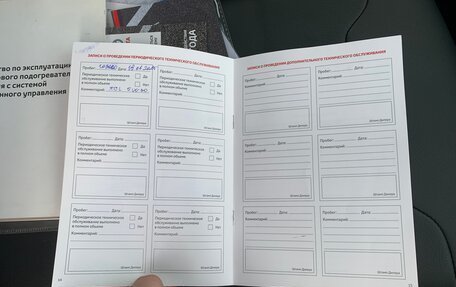 тво по эксплуатации
вого подогревател
я с системой
нного управления
ГОДА
ЗАПИСИ О ПРОВЕДЕНИИ ПЕРИОДИЧЕСКОГО ТЕХНИЧЕСКОГО ОБСЛУЖИВАНИЯ
Пробег: Дата:
Периодическое техническое обслуживание выполнено в полном объеме
Да
Нет
Комментарий:
Штамп Дилера
Пробег: Дата:
Периодическое техническое обслуживание выполнено в полном объеме
Да
Нет
Комментарий:
Штамп Дилера
Пробег: Дата:
Периодическое техническое обслуживание выполнено в полном объеме
Да
Нет
Комментарий:
Штамп Дилера
Пробег: Дата:
Периодическое техническое обслуживание выполнено в полном объеме
Да
Нет
Комментарий:
Штамп Дилера
Пробег: Дата:
Периодическое техническое обслуживание выполнено в полном объеме
Да
Нет
Комментарий:
Штамп Дилера
Пробег: Дата:
Периодическое техническое обслуживание выполнено в полном объеме
Да
Нет
Комментарий:
Штамп Дилера
ЗАПИСИ О ПРОВЕДЕНИИ ДОПОЛНИТЕЛЬНОГО ТЕХНИЧЕСКОГО ОБСЛУЖИВАНИЯ
Пробег: Дата:
Комментарий:
Штамп Дилера
Пробег: Дата:
Комментарий:
Штамп Дилера
Пробег: Дата:
Комментарий:
Штамп Дилера
Пробег: Дата:
Комментарий:
Штамп Дилера
Пробег: Дата:
Комментарий:
Штамп Дилера
Пробег: Дата:
Комментарий:
Штамп Дилера